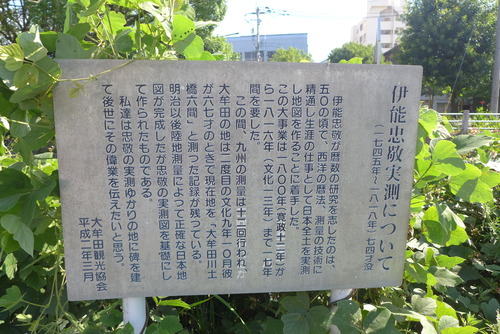 伊能忠敬実測について
(一七四五年~一八一八年)七四才没
伊能忠敬が暦数の研究を志したのは、
五〇の頃で、西洋の暦法、測量の技術に
精通し生涯の仕事として日本全土を実測
し地図を作ることに着手した。
この大事業は一八〇〇年(寛政十二年)か
ら一八一六年(文化一三年)まで一七年
間を要した。
この間、九州の測量は十二回行われ、
大牟田の地は二度目の文化九年一月彼
が六七才のときで現在地を「大牟田川土
橋六間」と測つた記録が残っている。
明治以後陸地測量によって正確な日本地
図が完成したが忠敬の実測図を基礎にし
て作られたものである。
私達は忠敬の実測ゆかりの地に碑を建
て後世にその偉業を伝えたいと思う。
大牟田観光協会
平成二年三月